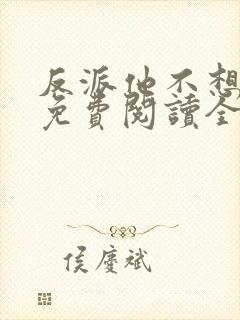 反派他不想
免費閱讀全
侯慶斌